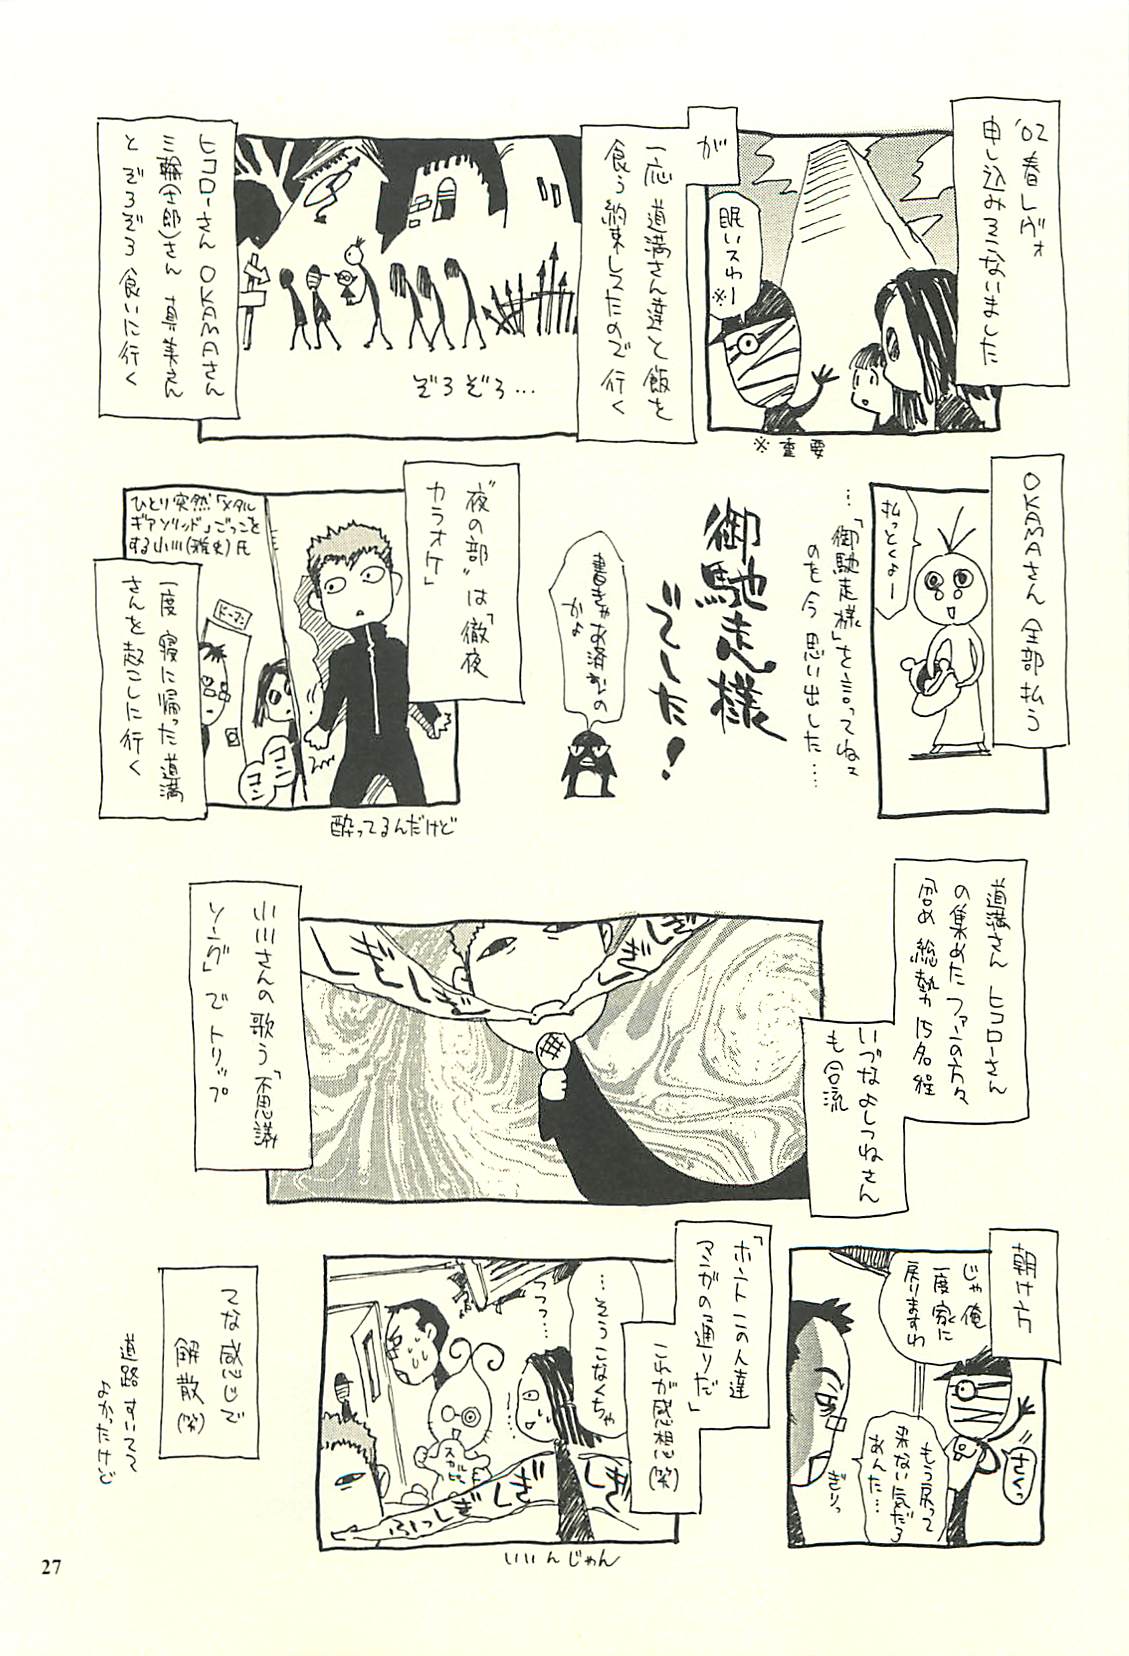 '02春レヴォ
申し込みそこないました
眠いスわー
※
※重要
が
一応 道満さん達と飯を
食う約束してたので行く
ぞろぞろ…
ヒコローさん OKAMAさん
三輪(士郎)さん 真美さん
と ぞろぞろ食いに行く
OKAMAさん 全部払う
払っとくよー
…「御馳走様」を言ってねェ
のを今思い出した……
御馳走様
でした!
書きゃあ済むの
かよ
"夜の部"は「徹夜
カラオケ」
ひとり突然「メタル
ギアソリッド」ごっこを
する小川(雅史)氏
ドーマン
コン
コン
酔ってるんだけど
一度 寝に帰った 道満
さんを起こしに行く
道満さん ヒコローさん
の集めたファンの方々
含め 総勢15名程
いづなよしつねさん
も合流
ふしぎふしぎ
しぎ
小川さんの歌う「不思議
ソング」でトリップ
朝け方
じゃ俺
一度家に
戻りますわ
さくっ
もう戻って
来ない気だろ
あんた…
ぎりっ
「ホントこの人達
マンガの通りだ」
これが感想(笑)
…そうこなくちゃ
つつつ…
スカルピー
ふっしぎ
しぎ
しぎ
いいんじゃん
てな感じで
解散(笑)
道路すいてて
よかったけど
27